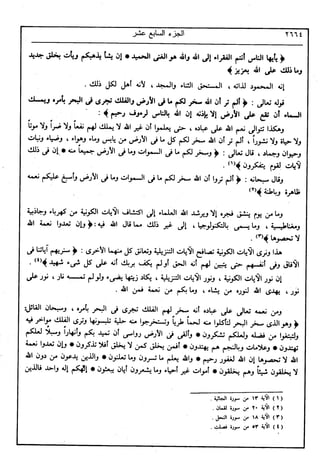 ٢٦٦٤ الجزء السابع عشر
﴿ يأيها الناس أنتم الفقراء إلى الله والله هو الغنى الحميد * إن يشأ يذهبكم ويأت بخلق جديد
وما ذلك على الله بعزيز ﴾
إنه المحمود لذاته ، المستحق الثناء والمجد ، لأنه أهل لكل ذلك .
قوله تعالى : ﴿ ألم تر أن الله سخر لكم ما فى الأرض والفلك تجرى فى البحر بأمره ويمسك
السماء أن تقع على الأرض إلا بإذنه إن الله بالناس لرءوف رحيم ﴾ :
وهكذا تتوالى نعم الله على عباده ، حتى يعلموا أن غير الله لا يملك لهم نفعاً ولا ضراً ولا موتاً
ولا حياة ولا نشوراً ، ألم تر أن الله سخر لكم كل ما فى الأرض من يابس وماء وهواء ، وضياء ونبات
وحيوان وجماد ، قال تعالى : ﴿ وسخر لكم ما فى السموات وما فى الأرض جميعاً منه * إن فى ذلك
لآيات لقوم يتفكرون ﴾(١) .
وقال سبحانه : ﴿ ألم تروا أن الله سخر لكم ما فى السموات وما فى الأرض وأسبغ عليكم نعمه
ظاهرة وباطنة ﴾(٢)
وما من يوم ينشق فجره إلا ويرشد الله العلماء إلى اكتشاف الآيات الكونية من كهرباء وجاذبية
ومغناطيسية ، وما يسمى بالتكنولوجيا ، إلى غير ذلك مما خلق الله ﴿ وإن تعدوا نعمة الله
لا تحصوها ﴾(٣) .
هذا وترى الآيات الكونية تصافح الآيات التنزيلية وتعانق كل منهما الأخرى : ﴿ سنريهم آياتنا فى
الآفاق وفى أنفسهم حتى يتبين لهم أنه الحق أو لم يكف بربك أنه على كل شىء شهيد ﴾(٤) .
إن نور الآيات الكونية ، ونور الآيات التنزيلية ، يكاد زيتها يضىء ولو لم تمسسه نار ، نور على
نور ، يهدى الله لنوره من يشاء ، وما بكم من نعمة فمن الله .
ومن نعمه تعالى على عباده أنه سخر لهم الفلك تجرى فى البحر بأمره ، وسبحان القائل:
﴿ وهو الذى سخر البحر لتأكلوا منه لحماً طرياً وتستخرجوا منه حلية تلبسونها وترى الفلك مواخر فيه
ولتبتغوا من فضله ولعلكم تشكرون * وألقى فى الأرض رواسى أن تميد بكم وأنهاراً وسبلاً لعلكم
تهتدون * وعلامات وبالنجم هم يهتدون * أفمن يخلق كمن لا يخلق أفلا تذكرون * وإن تعدوا نعمة
الله لا تحصوها إن الله لغفور رحيم * والله يعلم ما تسرون وما تعلنون * والذين يدعون من دون الله
لا يخلقون شيئاً وهم يخلقون * أموات غير أحياء وما يشعرون أيان يبعثون * إلهكم إله واحد فالذين
(١) الآية ١٣ من سورة الجاثية .
(٢) الآية ٢٠ من سورة لقمان .
(٣) الآية ١٨ من سورة النحل .
(٤) الآية ٥٣ من سورة فصلت .